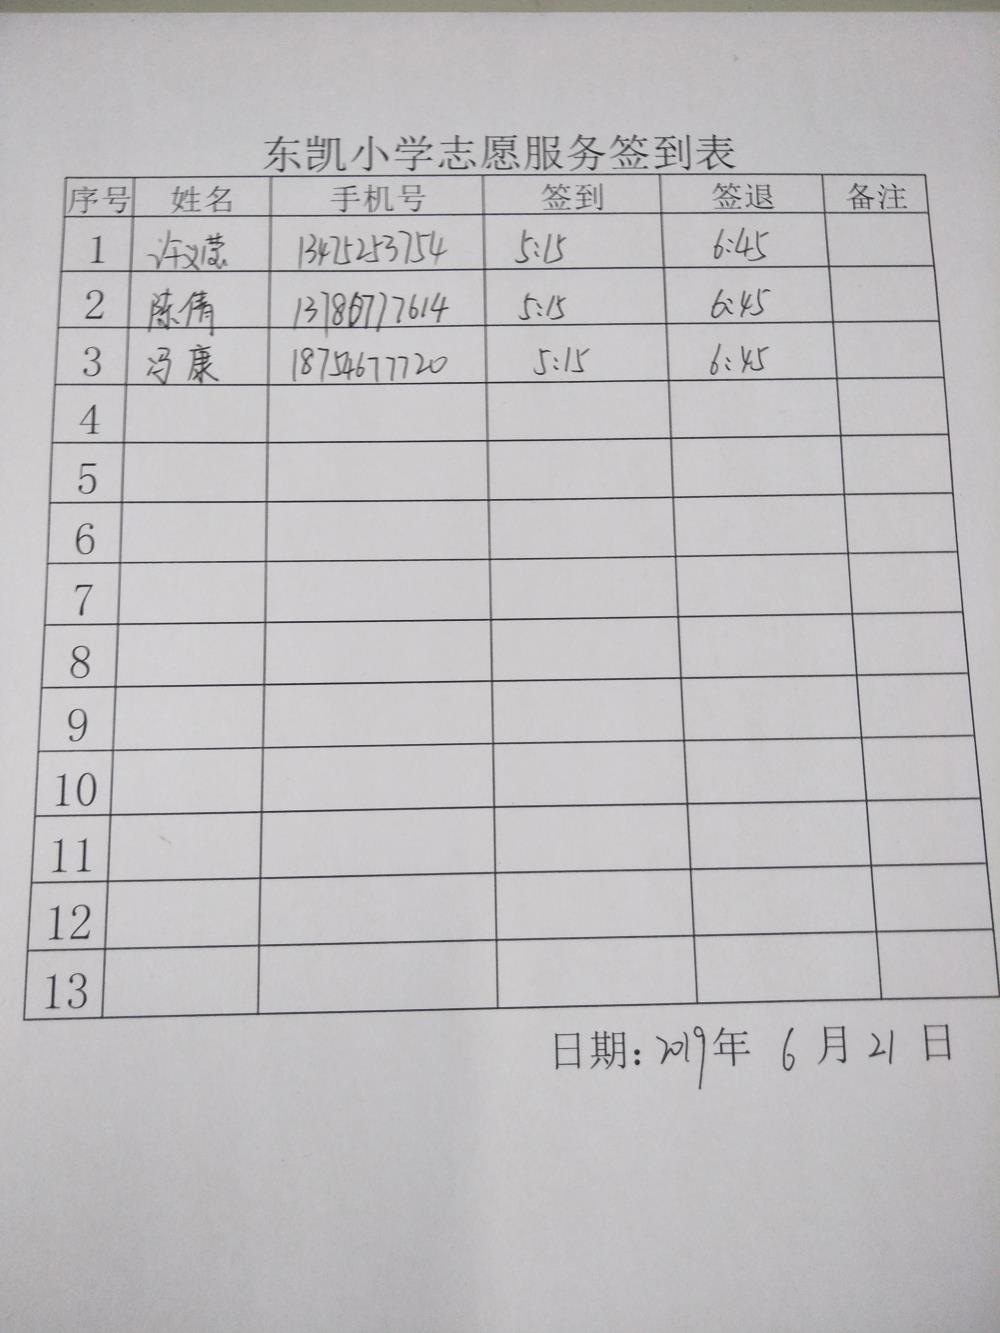 东凯小学志愿服务签到表
序号 姓名 手机号 签到 签退 备注
1 许义莹 13475253754 5:15 6:45
2 陈倩 13786777614 5:15 6:45
3 冯康 18754677720 5:15 6:45
4
5
6
7
8
9
10
11
12
13
日期: 2019年 6 月 21 日